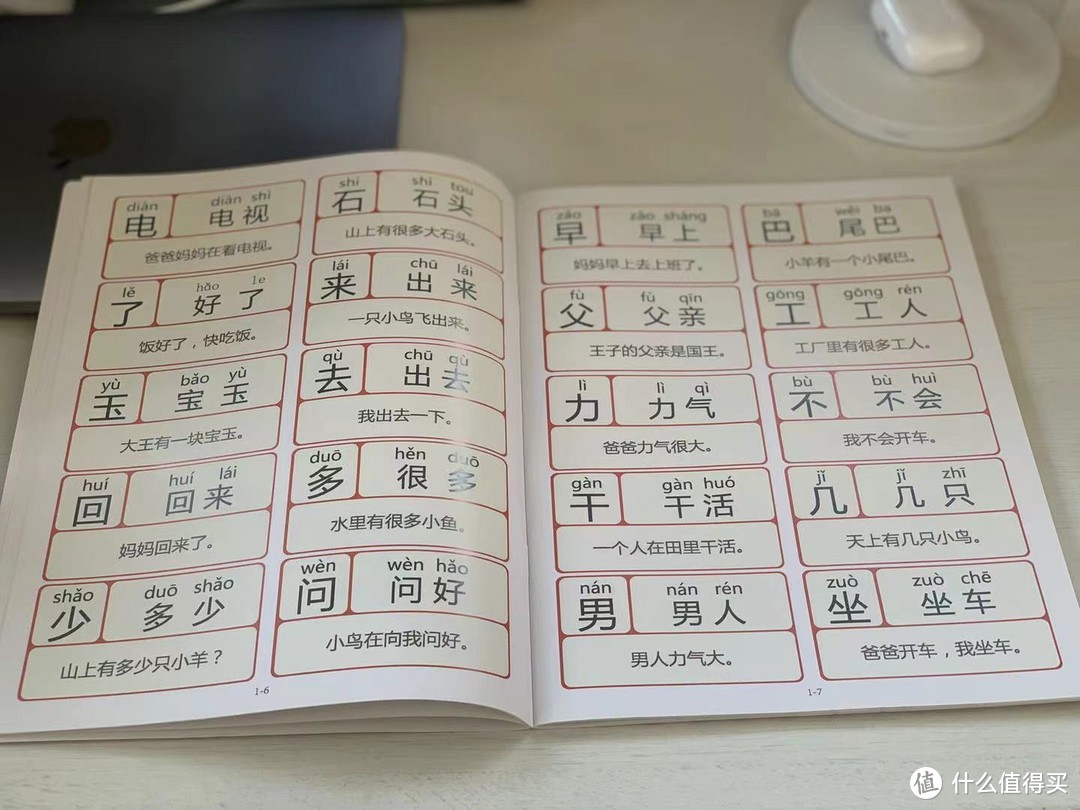 diàn diàn shì
电 电视
爸爸妈妈在看电视。
lě hǎo le
了 好了
饭好了，快吃饭。
yù bǎo yù
玉 宝玉
大王有一块宝玉。
huí huí lái
回 回来
妈妈回来了。
shǎo duō shǎo
少 多少
山上有多少只小羊？
shí shí tou
石 石头
山上有很多大石头。
lái chū lái
来 出来
一只小鸟飞出来。
qù chū qù
去 出去
我出去一下。
duō hěn duō
多 很多
水里有很多小鱼。
wèn wèn hǎo
问 问好
小鸟在向我问好。
1-6
zǎo zǎo shàng
早 早上
妈妈早上去上班了。
fù fù qīn
父 父亲
王子的父亲是国王。
lì lì qì
力 力气
爸爸力气很大。
gàn gàn huó
干 干活
一个人在田里干活。
nán nán rén
男 男人
男人力气大。
bā wěi ba
巴 尾巴
小羊有一个小尾巴。
gōng gōng rén
工 工人
工厂里有很多工人。
bù bù huì
不 不会
我不会开车。
jǐ jǐ zhī
几 几只
天上有几只小鸟。
zuò zuò chē
坐 坐车
爸爸开车，我坐车。
1-7
值 什么值得买